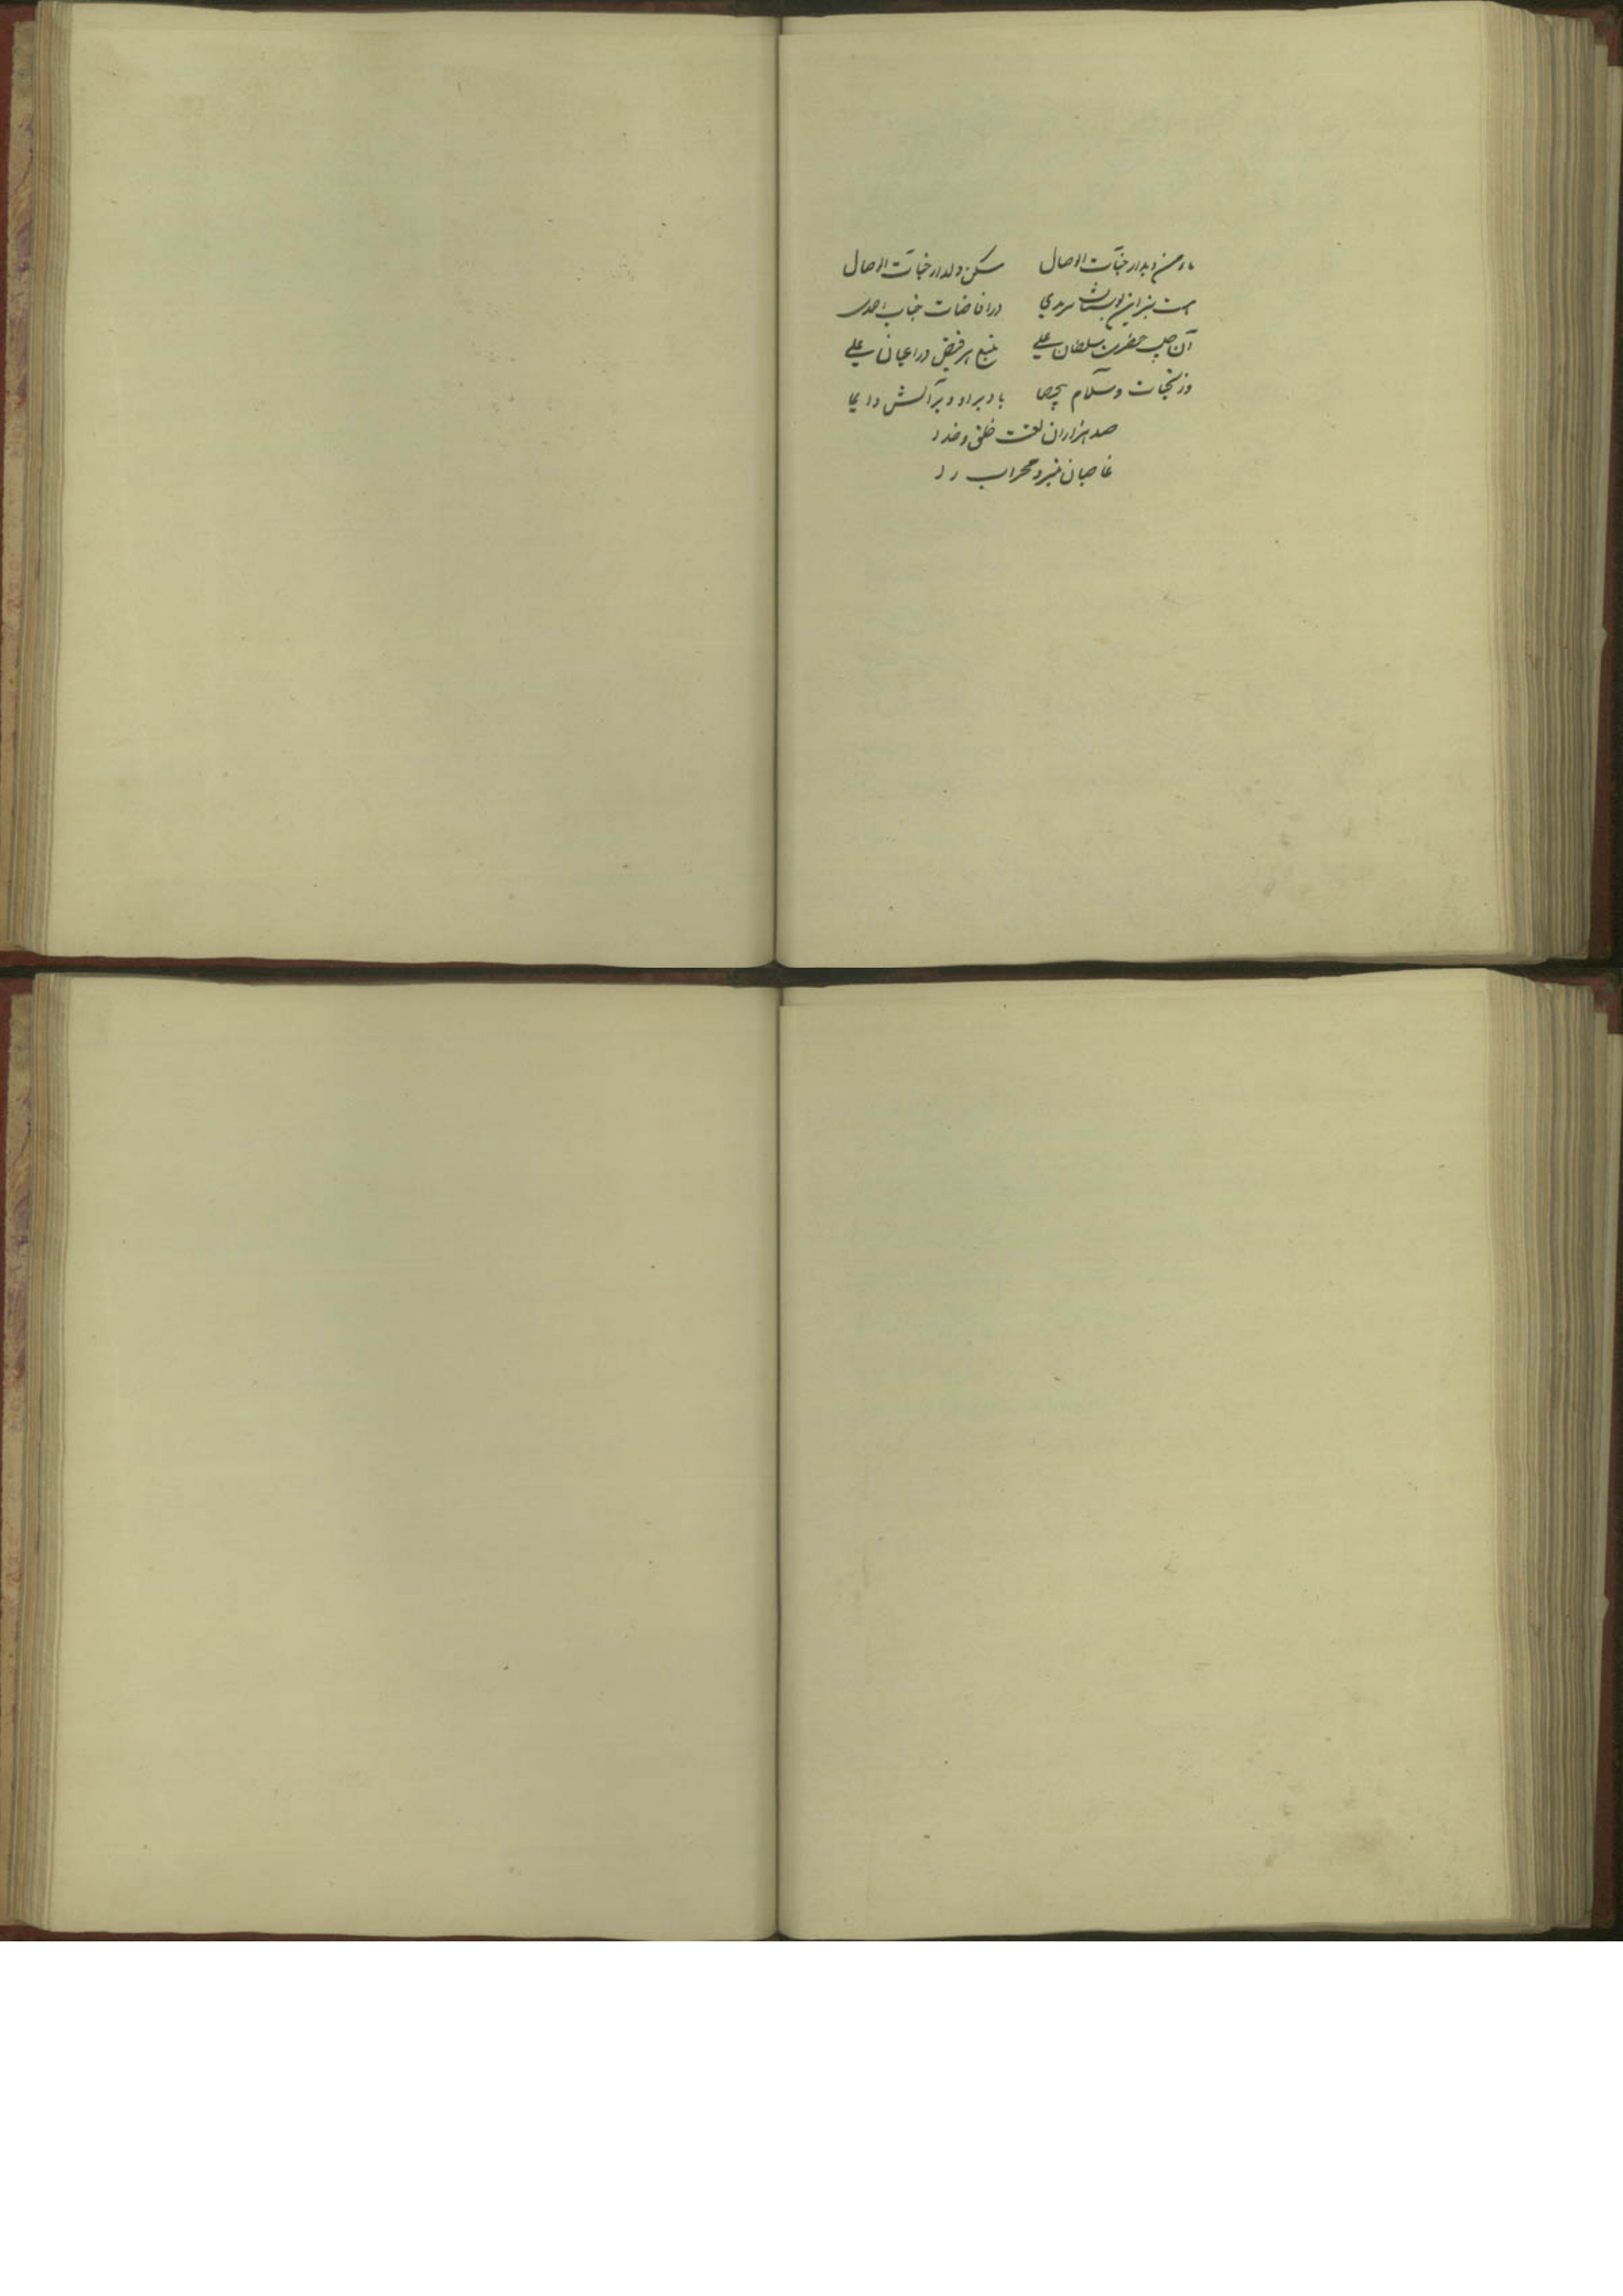 مأمن دیدار جنّات الوصال مسکن دلدار جنّات الوصال
هست نیز این بوستان سرمدی در افاضات جناب احمدی
آن حبیب حضرت سلطان علی منبع هر فیض در اعیان علی
وز تحیات و سلام بر او و بر آلش دایما
صد هزاران لعنت خلق و خدا
غاصبان منبر و محراب را